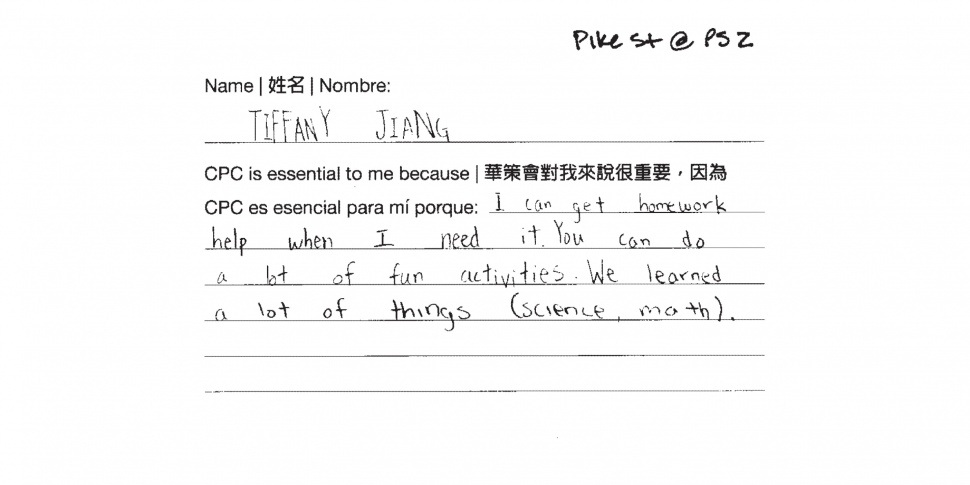 Pike St @ PS 2
Name | 姓名 | Nombre:
TIFFANY JIANG
CPC is essential to me because | 華策會對我來說很重要，因為
CPC es esencial para mí porque: I can get homework
help when I need it. You can do
a lot of fun activities. We learned
a lot of things (science, math).